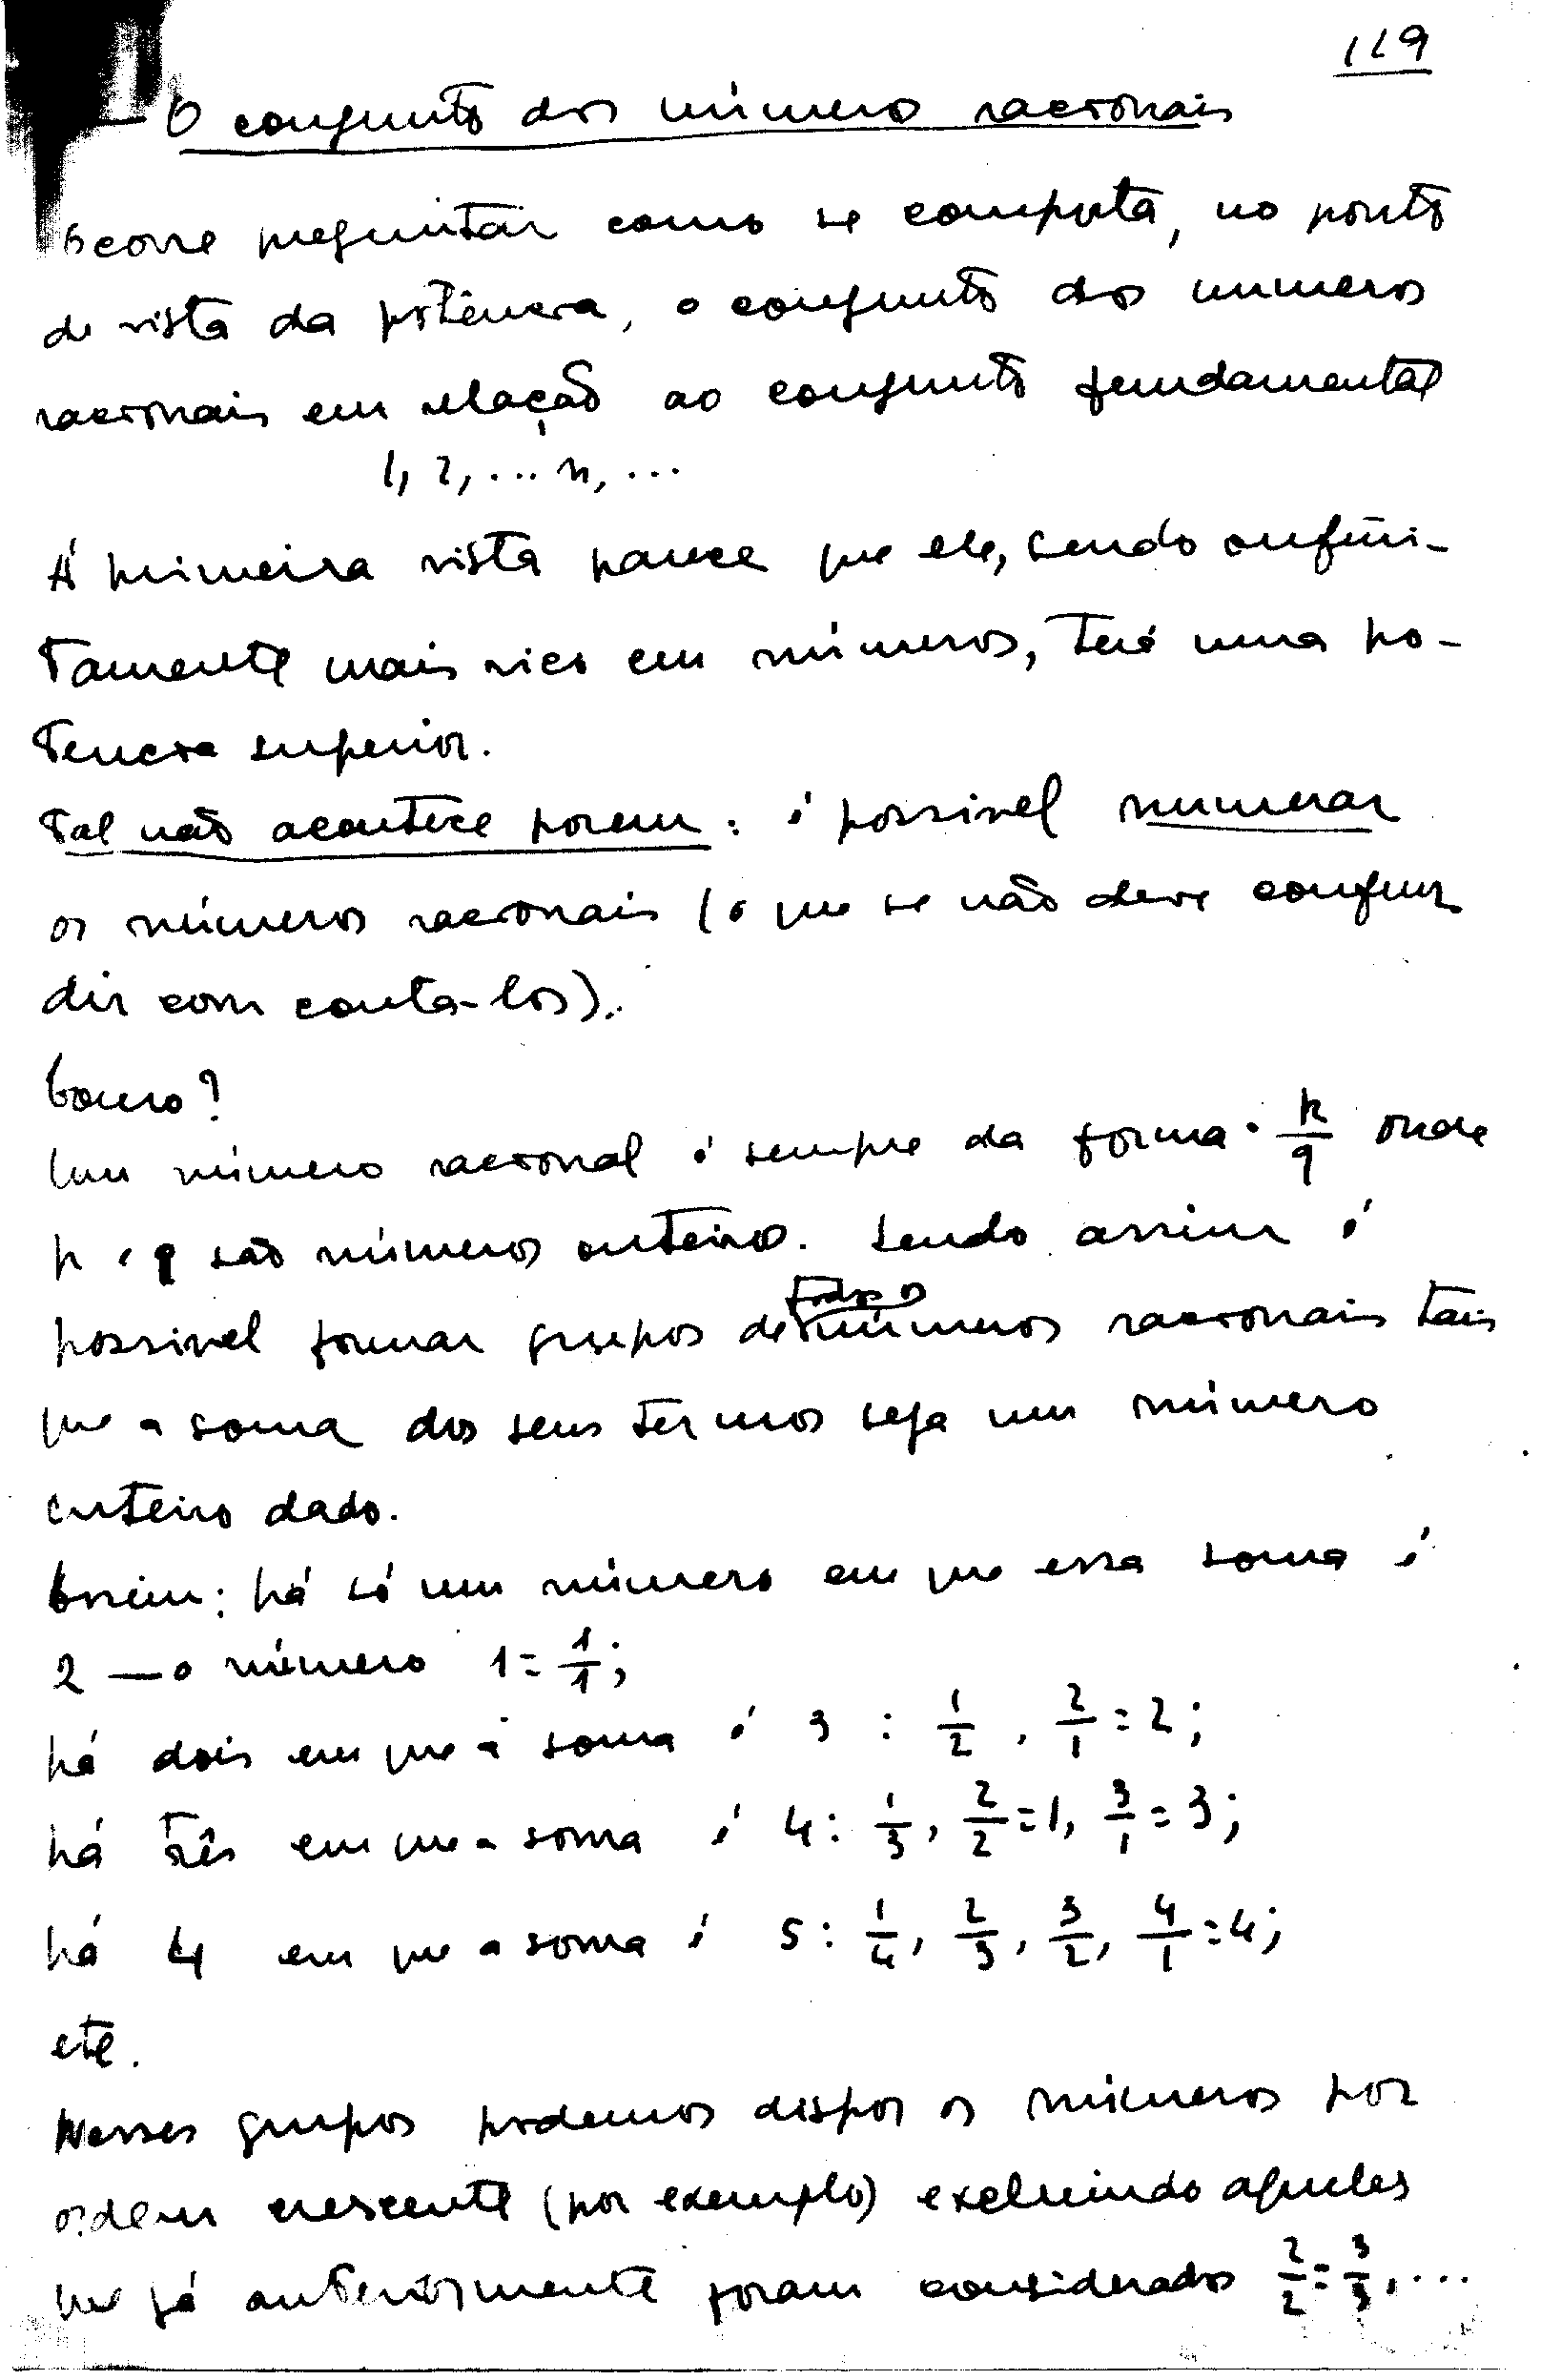 119
— O conjunto dos números racionais
Ocorre preguntar como se comporta, no ponto
de vista da potência, o conjunto dos numeros
racionais em relação ao conjunto fundamental
1, 2, ... n, ...
Á primeira vista parece que ele, sendo infini-
tamente mais rico em números, terá uma po-
tencia superior.
Tal não acontece porem: é possivel numerar
os números racionais (o que se não deve confun
dir com conta-los).
Como?
Um número racional é sempre da forma p/q onde
p e q são números inteiros. Sendo assim é
possivel formar grupos de todos os números racionais tais
que a soma dos seus termos seja um número
inteiro dado.
Assim: há só um número em que essa soma é
2 — o número 1 = 1/1;
há dois em que a soma é 3 : 1/2, 2/1 = 2;
há três em que a soma é 4: 1/3, 2/2 = 1, 3/1 = 3;
há 4 em que a soma é 5: 1/4, 2/3, 3/2, 4/1 = 4;
etc.
Nesses grupos podemos dispor os números por
ordem crescente (por exemplo) excluindo aqueles
que já anteriormente foram considerados 2/2 = 3/3, ...